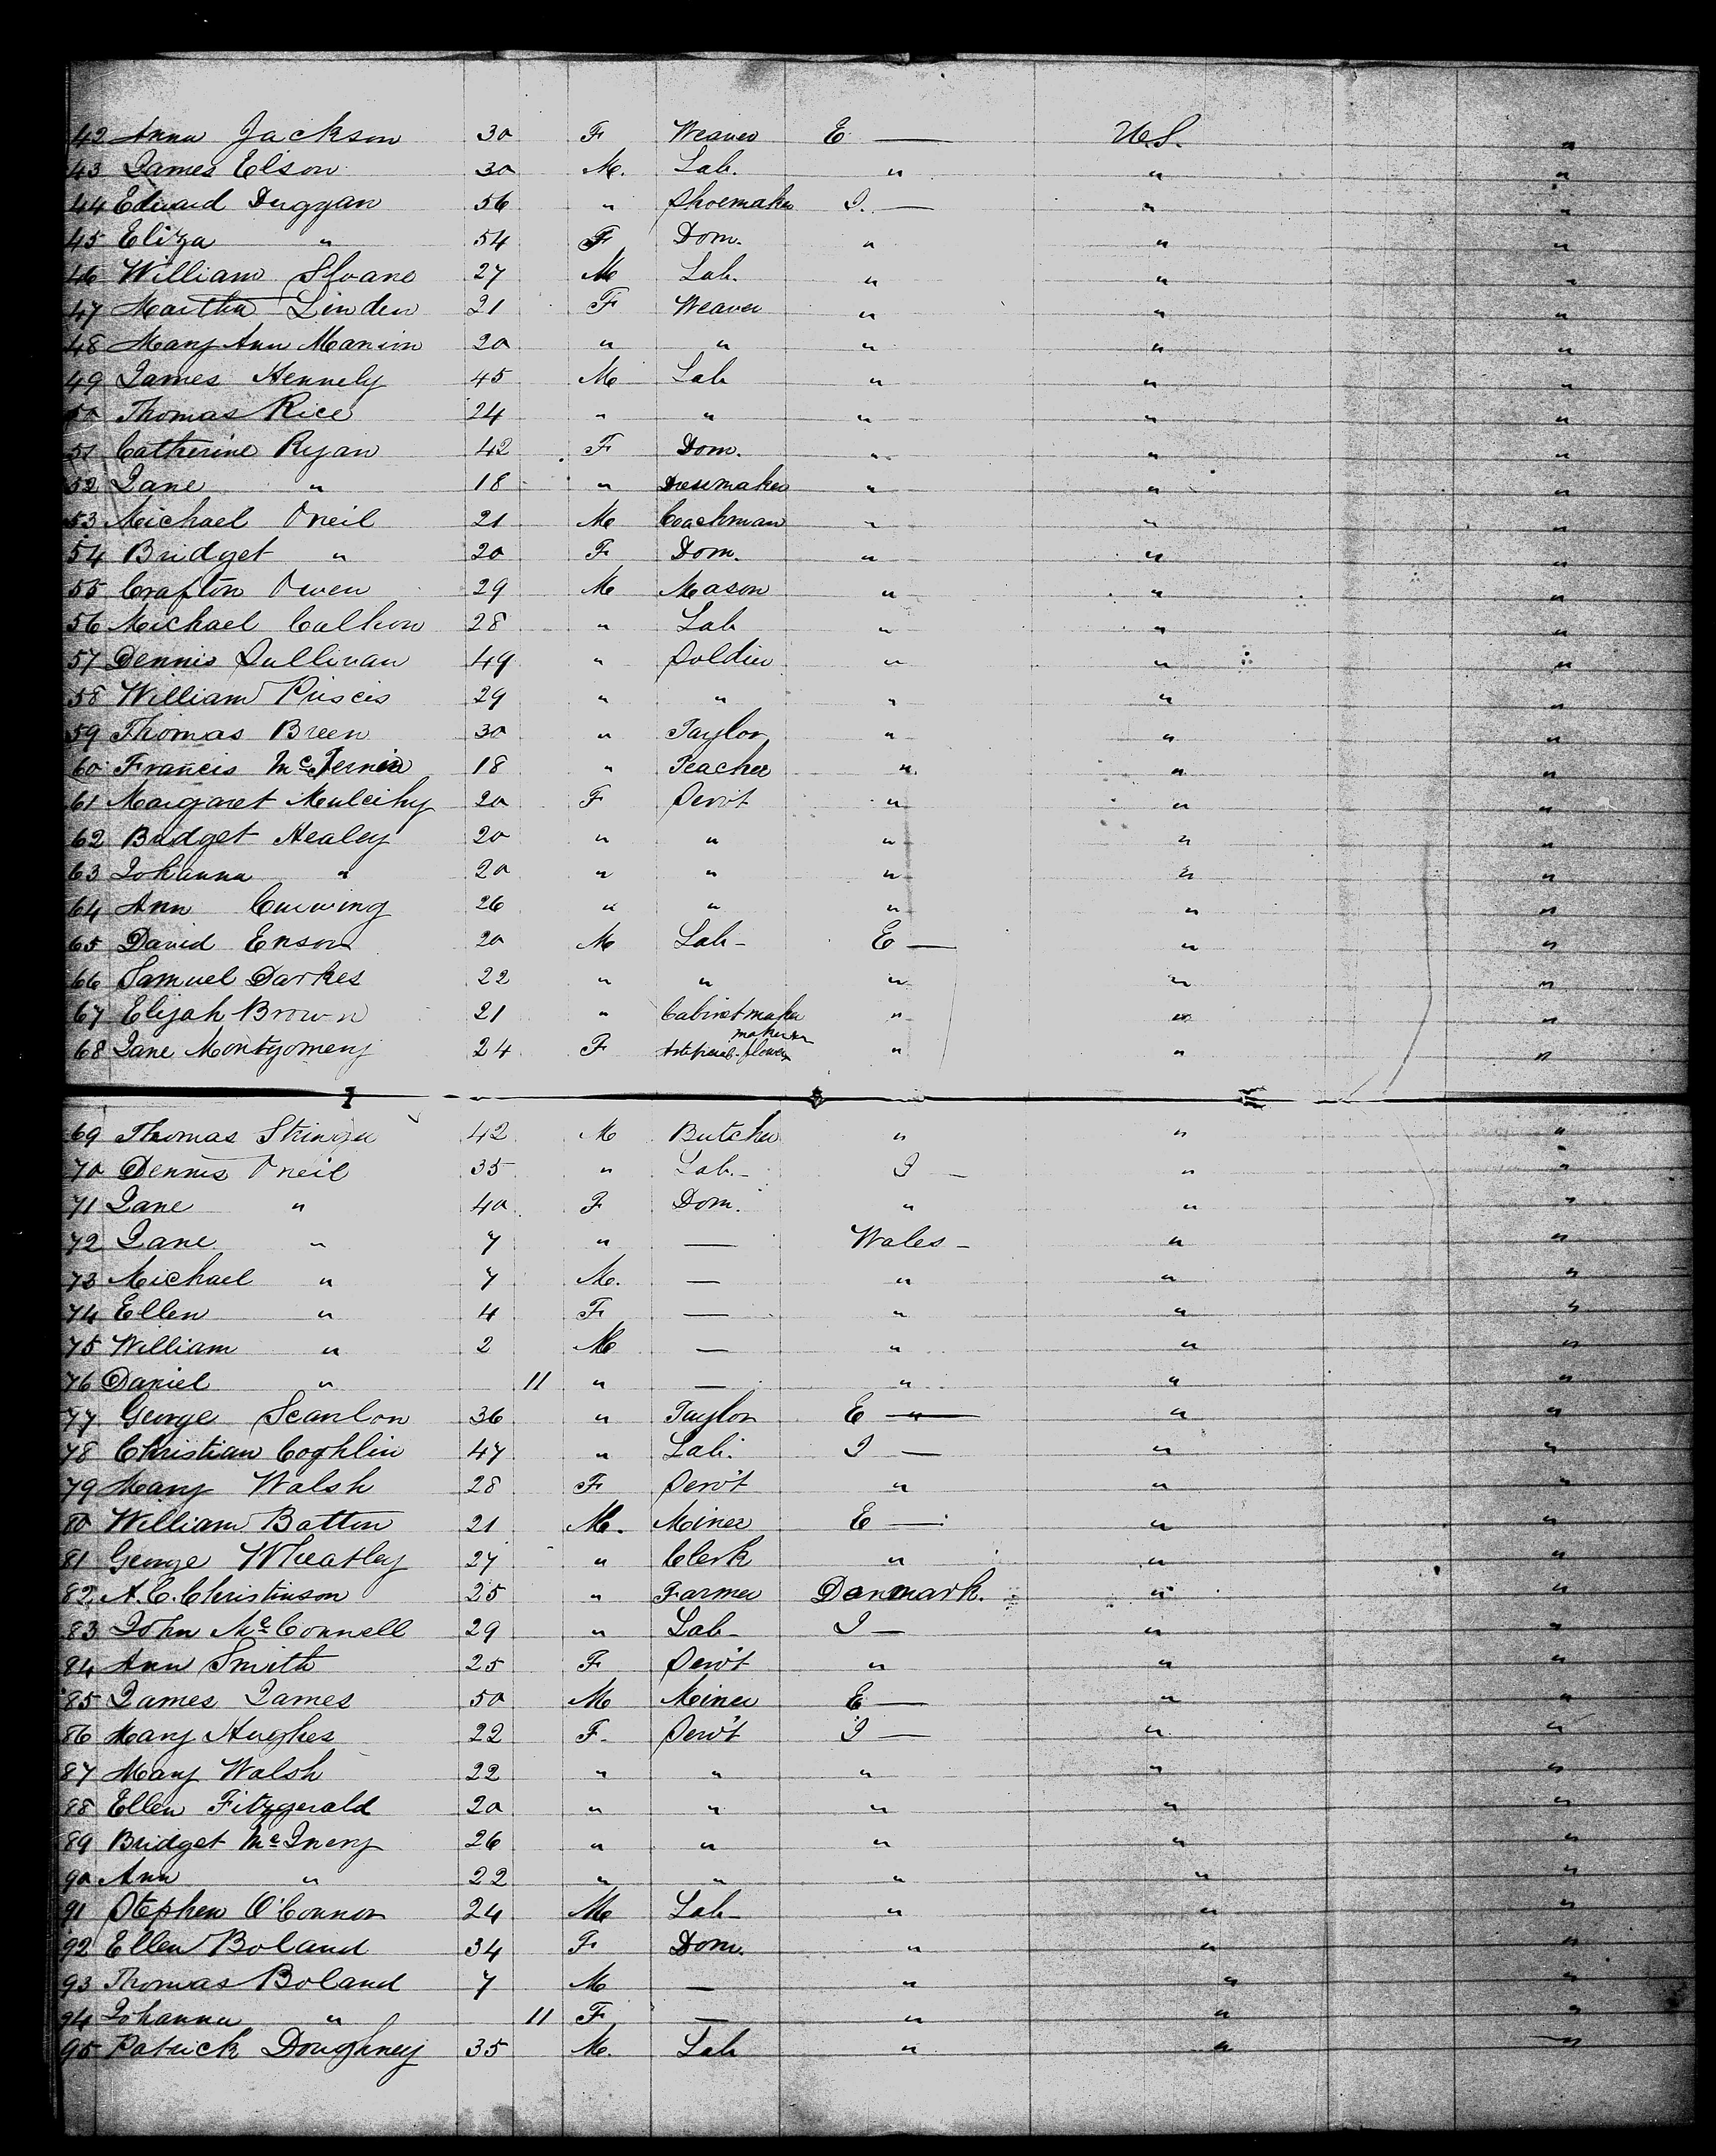 42 Anna Jackson 30 F Weaver E — U.S. "
43 James Elson 30 M. Lab. " " "
44 Edward Duggan 56 " Shoemaker I. — " "
45 Eliza " 54 F Dom. " " "
46 William Sloane 27 M Lab. " " "
47 Martha Linden 21 F Weaver " " "
48 Mary Ann Manion 20 " " " " "
49 James Hennely 45 M Lab " " "
50 Thomas Rice 24 " " " " "
51 Catherine Ryan 42 F Dom. " " "
52 Jane " 18 " Dressmaker " " "
53 Michael Oneil 21 M Coachman " " "
54 Bridget " 20 F Dom. " " "
55 Crafton Owen 29 M Mason " " "
56 Michael Calhoun 28 " Lab " " "
57 Dennis Sullivan 49 " Soldier " " "
58 William 29 " " " " "
59 Thomas Breen 30 " Taylor " " "
60 Francis 18 " Teacher " " "
61 Margaret Mulcihy 20 F Servt " " "
62 Bridget Healey 20 " " " " "
63 Johanna " 20 " " " " "
64 Ann 26 " " " " "
65 David Enson 20 M Lab - E — " "
66 Samuel Darkes 22 " " " " "
67 Elijah Brown 21 " Cabinet maker " " "
68 Jane Montgomery 24 F flower maker " " "
69 Thomas Stringer 42 M Butcher " " "
70 Dennis Oneil 35 " Lab - I — " "
71 Jane " 40 F Dom. " " "
72 Jane " 7 " — Wales - " "
73 Michael " 7 M. — " " "
74 Ellen " 4 F — " " "
75 William " 2 M — " " "
76 Daniel " 11 " — " " "
77 George Scanlon 36 " Taylor E — " "
78 Christian Coghlin 47 " Lab. I — " "
79 Mary Walsh 28 F Serv't " " "
80 William Batten 21 M. Miner E — " "
81 George Wheatley 27 " Clerk " " "
82 A. C. Christinson 25 " Farmer Danmark. " "
83 John McConnell 29 " Lab - I — " "
84 Ann Smith 25 F Serv't " " "
85 James James 50 M Miner E — " "
86 Mary Hughes 22 F. Serv't I — " "
87 Mary Walsh 22 " " " " "
88 Ellen Fitzgerald 20 " " " " "
89 Bridget McInery 26 " " " " "
90 Ann " 22 " " " " "
91 Stephen O'Connor 24 M Lab - " " "
92 Ellen Boland 34 F Dom. " " "
93 Thomas Boland 7 M — " " "
94 Johanna " 11 F — " " "
95 Patrick Doughney 35 M. Lab " " "